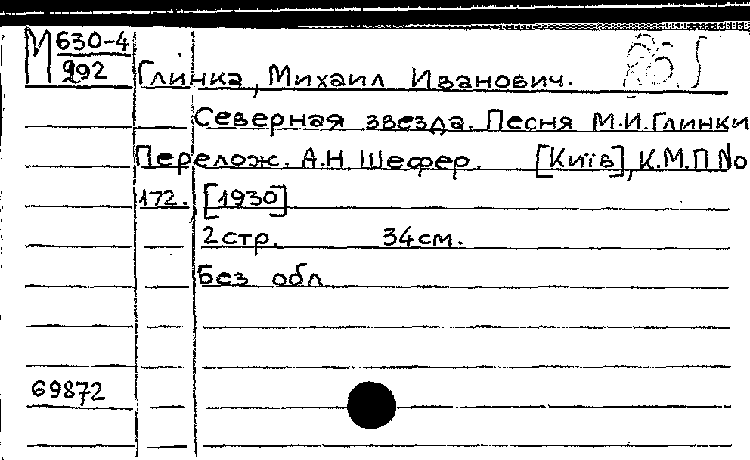 М 630-4
992
Глинка, Михаил Иванович.
Северная звезда. Песня М.И.Глинки
Перелож. А.Н. Шефер. [Київ], К.М.П. No
172. [1930]
2 стр. 34 см.
Без обл
69872